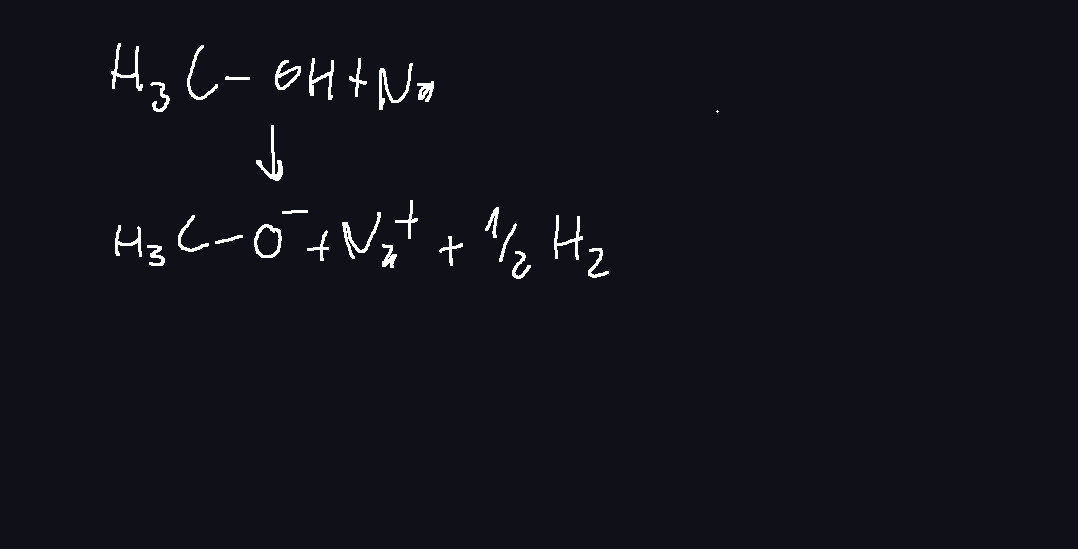 H₃C-OH+Na
↓
H₃C-O⁻+Na⁺+½H₂